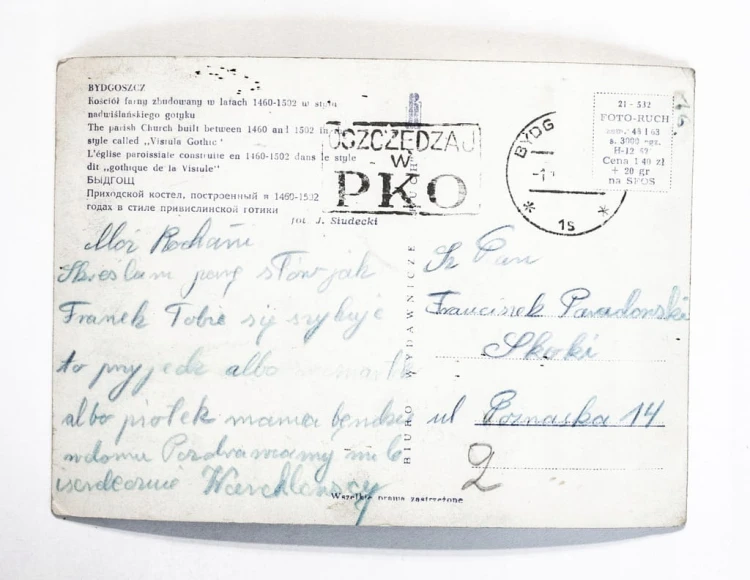 BYDGOSZCZ
Kościół farny zbudowany w latach 1460-1502 w stylu
nadwiślańskiego gotyku
The parish Church built between 1460 and 1502 in
style called „Vistula Gothic"
L'église paroissiale construite en 1460-1502 dans le style
dit „gothique de la Vistule"
БЫДГОЩ
Приходской костел, построенный в 1460-1502
годах в стиле привислинской готики
fot. J. Siudecki
OSZCZĘDZAJ
W
PKO
BYDG
1s
21-532
FOTO-RUCH
zam. 48 1 63
H-12 62
Cena 1 40 zł
+ 20 gr
na SFOS
16.
BIURO WYDAWNICZE „RUCH"
Moi Kochani
Skreślam parę słów jak
Franek Tobie się szykuje
to przyjedz albo
albo piotek mama bendzie
w domu Pozdrawiamy mile
i serdecznie
Sz Pan
Franciszek
Skoki
ul Poznaska 14
2
Wszelkie prawa zastrzeżone